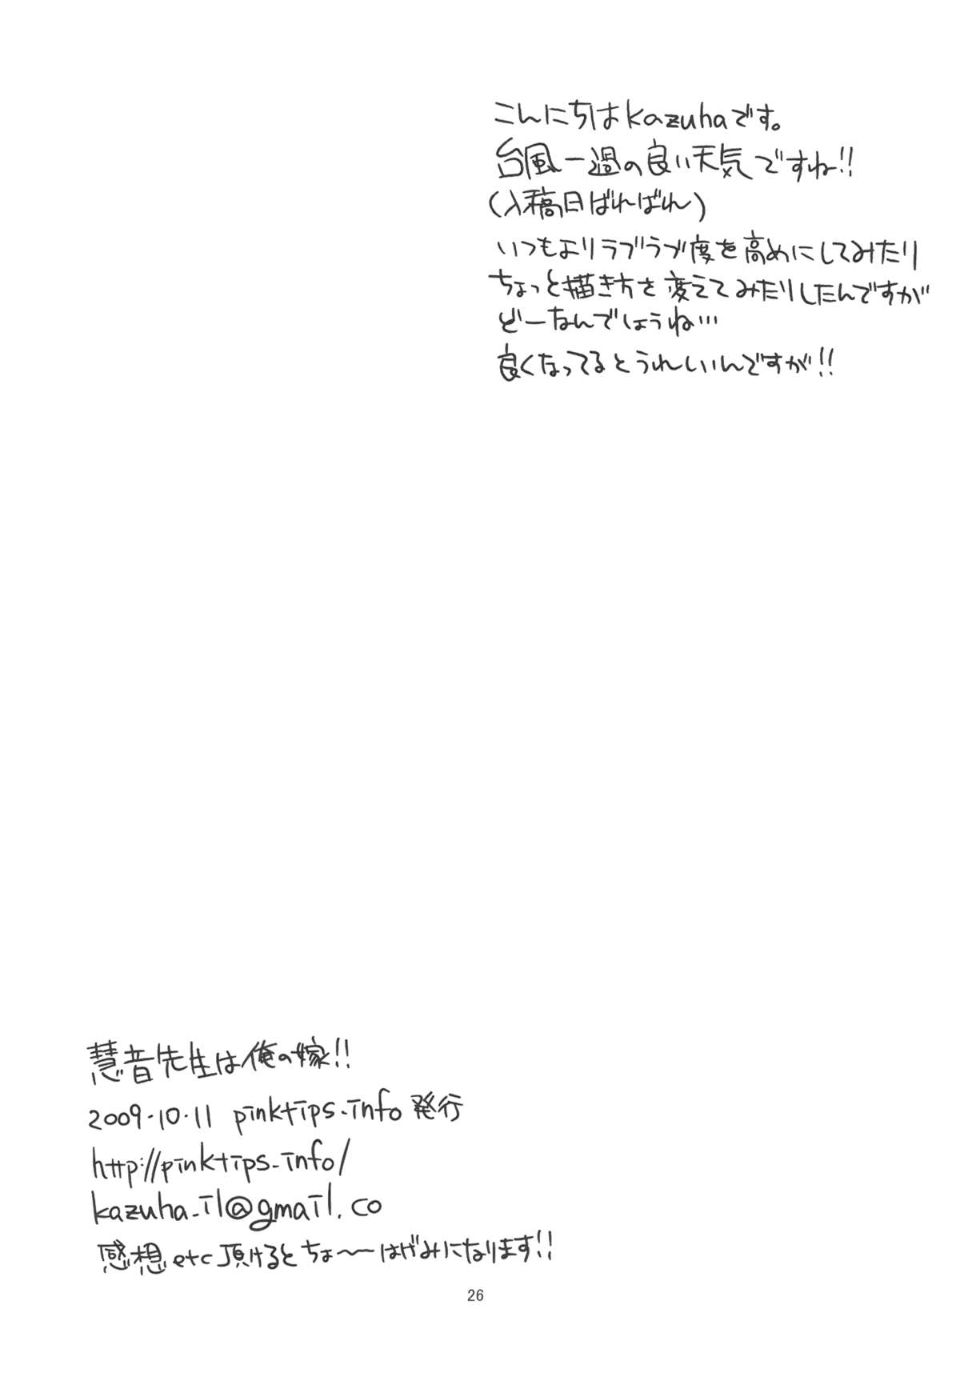 こんにちはkazuhaです。
台風一過の良い天気ですね!!
(入稿日ばればれ)
いつもよりラブラブ度を高めにしてみたり
ちょっと描き方を変えてみたりしたんですが
どーなんでしょうね…
良くなってるとうれしいんですが!!
慧音先生は俺の嫁!!
2009・10・11 pinktips.info発行
http://pinktips.info/
kazuha_il@gmail.co
感想etc頂けるとちょ〜〜はげみになります!!
26